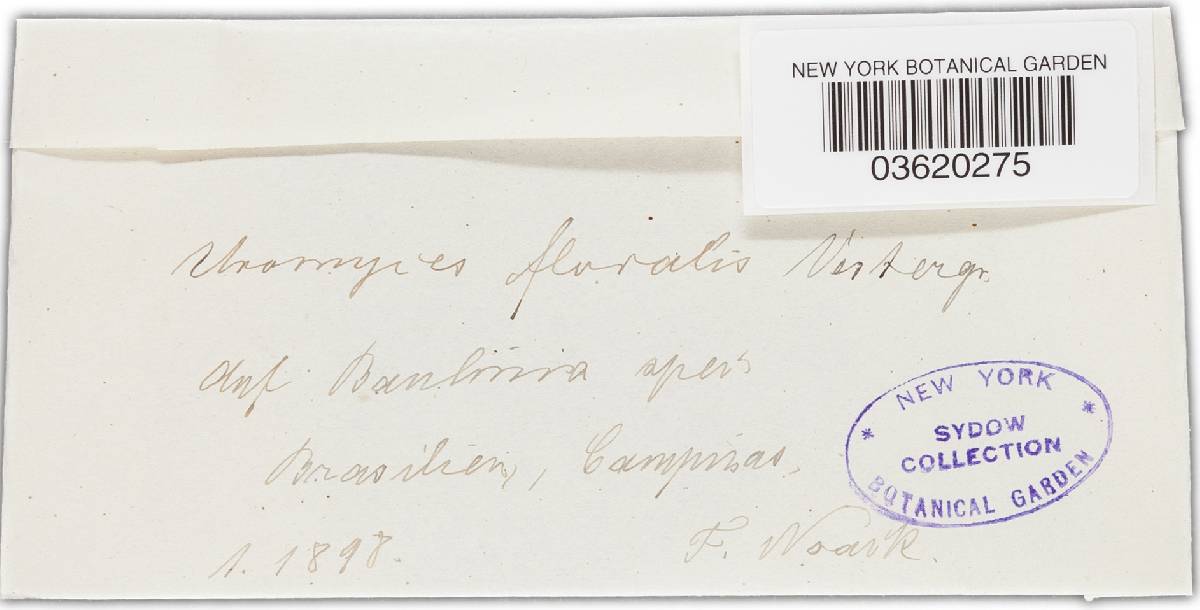 NEW YORK BOTANICAL GARDEN
03620275
Uromyces floralis Vestergr.
auf Bauhinia spec.
Brasilien, Campinas.
1. 1898. F. Noack.
NEW YORK
SYDOW
COLLECTION
BOTANICAL GARDEN